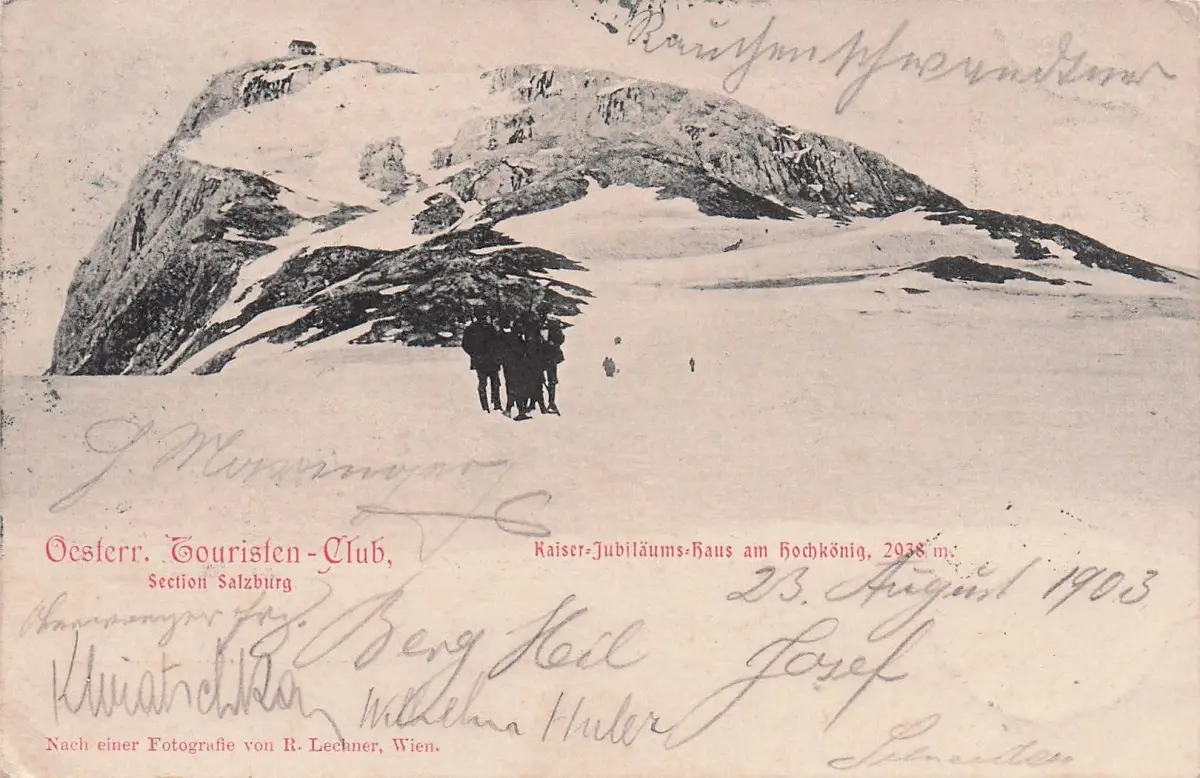 Rauchenschwandtner
J. Moninger
Oesterr. Touristen-Club,
Section Salzburg
Kaiser-Jubiläums-Haus am Hochkönig, 2938 m.
23. August 1903
Berg Heil
Josef
Kwiatschka
Wilhelm Huler
Nach einer Fotografie von R. Lechner, Wien.
Schneider